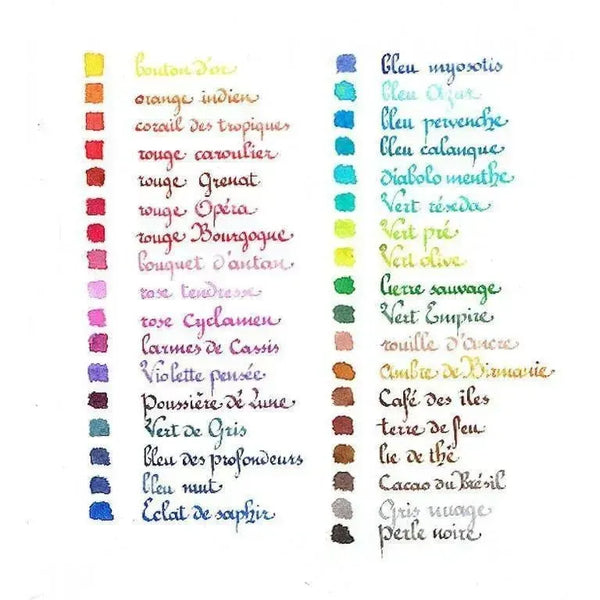 bouton d'or
orange indien
corail des tropiques
rouge caroubier
rouge Grenat
rouge Opéra
rouge Bourgogne
bouquet d'antan
rose tendresse
rose Cyclamen
larmes de Cassis
Violette pensée
Poussière de Lune
Vert de Gris
bleu des profondeurs
bleu nuit
Eclat de saphir
bleu myosotis
bleu Azur
bleu pervenche
bleu calanque
diabolo menthe
Vert réséda
Vert pré
Vert olive
lierre sauvage
Vert Empire
rouille d'ancre
ambre de Birmanie
Café des îles
terre de feu
lie de thé
Cacao du Brésil
Gris nuage
perle noire